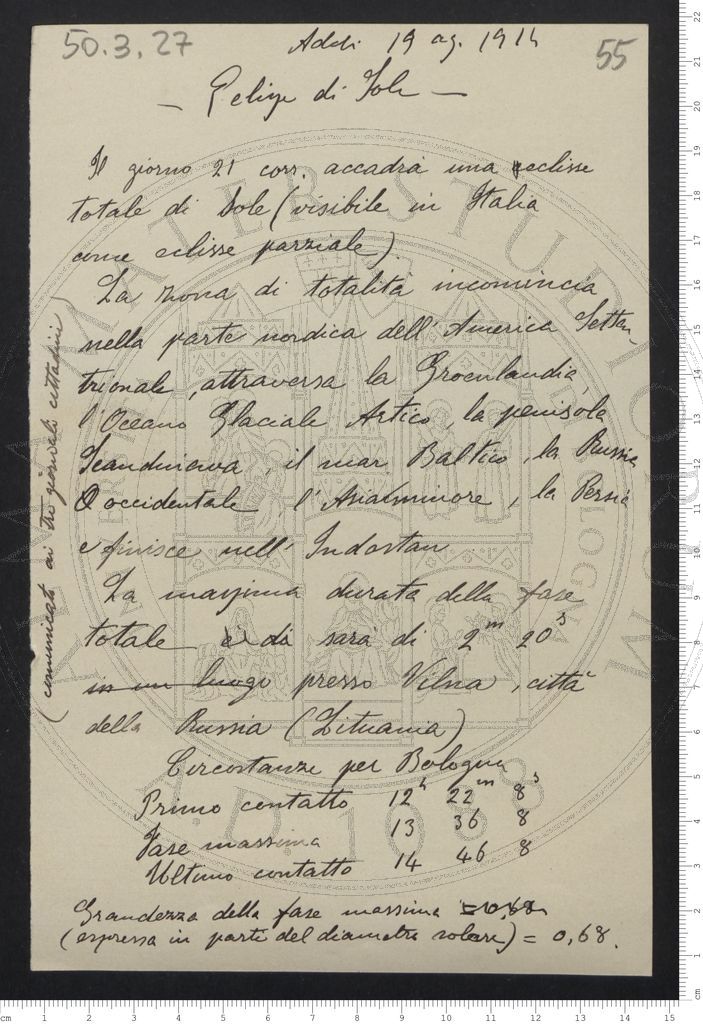 50.3.27
Addi 19 ag. 1914
55
— Eclisse di Sole —
Il giorno 21 corr. accadrà una eclisse
totale di Sole (visibile in Italia
come eclisse parziale)
La zona di totalità incomincia
nella parte nordica dell'America Setten-
trionale, attraversa la Groenlandia,
l'Oceano Glaciale Artico, la penisola
Scandinava, il mar Baltico, la Russia
Occidentale l'Asia minore, la Persia
e finisce nell'Indostan
La massima durata della fase
totale sarà di 2m 20s
in un luogo presso Vilna, città
della Russia (Lituania)
Circostanze per Bologna
Primo contatto 12h 22m 8s
Fase massima 13 36 8
Ultimo contatto 14 46 8
Grandezza della fase massima = 0,68
(espressa in parti del diametro solare) = 0,68.
(comunicato ai tre giornali cittadini)
ALMA MATER STUDIORUM
A.D. 1088